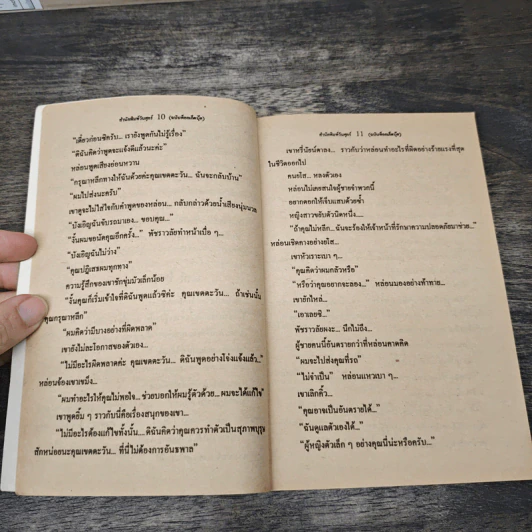 สำนักพิมพ์วันศุกร์ 10 (ฉบับพ็อคเก็ตบุ๊ค)
"เดี๋ยวก่อนซิครับ... เรายังพูดกันไม่รู้เรื่อง"
"ดิฉันคิดว่าพูดจะแจ้งดีแล้วนะคะ"
หล่อนพูดเสียงอ่อนหวาน
"กรุณาหลีกทางให้ฉันด้วยค่ะคุณเขตตะวัน... ฉันจะกลับบ้าน"
"ผมไปส่งนะครับ"
เขาดูจะไม่ใส่ใจกับคำพูดของหล่อน... กลับกล่าวด้วยน้ำเสียงนุ่มนวล
"บังเอิญฉันขับรถมาเอง... ขอบคุณ..."
"งั้นผมขอนัดคุณอีกครั้ง..." พัชราวลัยทำหน้าเบื่อ ๆ...
"บังเอิญฉันไม่ว่าง"
"คุณปฏิเสธผมทุกทาง"
ความรู้สึกของเขาชักขุ่นมัวเล็กน้อย
"งั้นคุณก็เริ่มเข้าใจที่ดิฉันพูดแล้วซิคะ คุณเขตตะวัน... ถ้าเช่นนั้น
คุณกรุณาหลีก"
"ผมคิดว่ามีบางอย่างที่ผิดพลาด"
เขายังไม่ละโอกาสของตัวเอง...
"ไม่มีอะไรผิดพลาดค่ะ คุณเขตตะวัน... ดิฉันพูดอย่างโจ่งแจ้งแล้ว..."
หล่อนจ้องเขาเขม็ง...
"ผมทำอะไรให้คุณไม่พอใจ... ช่วยบอกให้ผมรู้ตัวด้วย... ผมจะได้แก้ไข"
เขาพูดยิ้ม ๆ ราวกับนี่คือเรื่องสนุกของเขา...
"ไม่มีอะไรต้องแก้ไขทั้งนั้น.... ดิฉันคิดว่าคุณควรทำตัวเป็นสุภาพบุรุษ
สักหน่อยนะคุณเขตตะวัน... ที่นี่ไม่ต้องการอันธพาล"
สำนักพิมพ์วันศุกร์ 11 (ฉบับพ็อคเก็ตบุ๊ค)
เขาหรี่นัยน์ตาลง... ราวกับว่าหล่อนทำอะไรที่ผิดอย่างร้ายแรงที่สุด
ในชีวิตออกไป
คนหยิ่ง... หลงตัวเอง
หล่อนไม่เคยสนใจผู้ชายจำพวกนี้
อยากตอกให้เจ็บแสบด้วยซ้ำ
หญิงสาวขยับตัวนิดหนึ่ง...
"ถ้าคุณไม่หลีก... ฉันจะร้องให้เจ้าหน้าที่รักษาความปลอดภัยมาช่วย..."
หล่อนเชิดคางอย่างยโส...
เขาหัวเราะเบา ๆ
"คุณคิดว่าผมกลัวหรือ"
"หรือว่าคุณอยากจะลอง..." หล่อนมองอย่างท้าทาย...
เขายักไหล่...
"เอาเลยซิ..."
พัชราวลัยผงะ... นึกไม่ถึง...
ผู้ชายคนนี้อันตรายกว่าที่หล่อนคาดคิด
"ผมจะไปส่งคุณที่รถ"
"ไม่จำเป็น" หล่อนแหวเบา ๆ...
เขาเลิกคิ้ว...
"คุณอาจเป็นอันตรายได้..."
"ฉันดูแลตัวเองได้..."
"ผู้หญิงตัวเล็ก ๆ อย่างคุณนี่น่ะหรือครับ..."